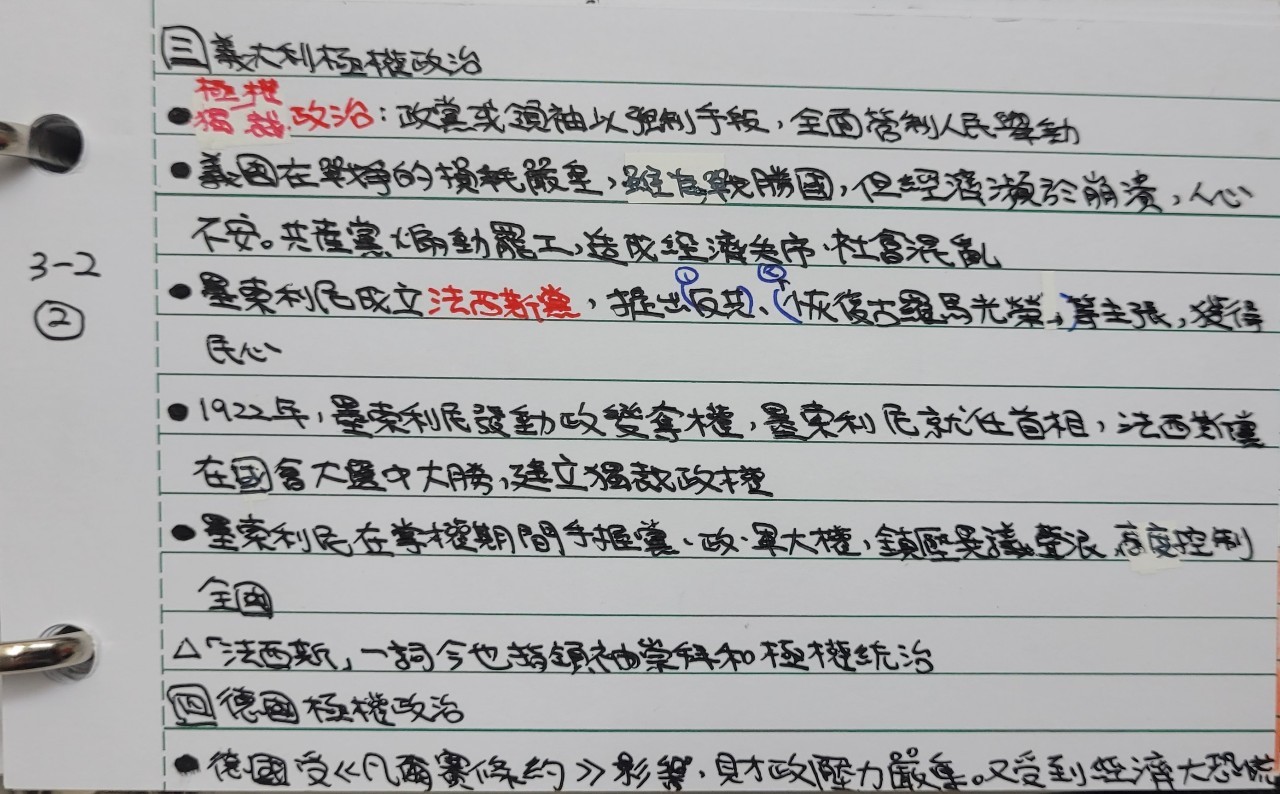 三 義大利極權政治
● 極權
獨裁 政治：政黨或領袖以強制手段，全面管制人民舉動
● 義國在戰爭的損耗嚴重，雖為戰勝國，但經濟瀕於崩潰，人心
不安。共產黨煽動罷工，造成經濟失序、社會混亂
3-2
②
● 墨索利尼成立法西斯黨，提出①(反共)、②(恢復古羅馬光榮)等主張，獲得
民心
● 1922年，墨索利尼發動政變奪權，墨索利尼就任首相，法西斯黨
在國會大選中大勝，建立獨裁政權
● 墨索利尼在掌權期間手握黨、政、軍大權，鎮壓異議聲浪，高度控制
全國
△「法西斯」一詞今也指領袖崇拜和極權統治
四 德國極權政治
● 德國受《凡爾賽條約》影響，財政壓力嚴重。又受到經濟大恐慌